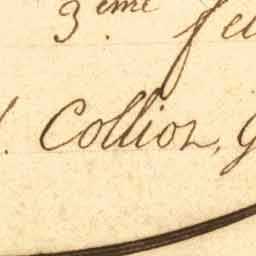 3.eme fe
l. Collion, G